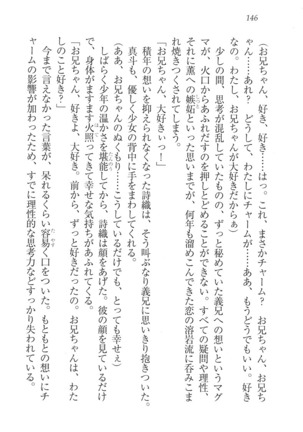 146
ゃん……あれ？　どうして、わたしにチャーム が……ああ、もうどうでもいい。好き
(お兄ちゃん、好き、好き……はっ。これ、まさかチャーム？　お兄ちゃん、お兄ち
なの。わたし、お兄ちゃんが大好きだからぁ)
少しの間、思考が混乱していたものの、ずっと秘めていた義兄への想いというマグ
マが、火口からあふれだすのを押しとどめることができない。すべての疑問や理性、
それに薫への嫉妬といった思いまでが、何年も溜めこんできた恋の溶岩流に呑みこま
れ焼きつくされてしまう。
「お兄ちゃん、大好きいっ！」
積年の想いを抑えられなくなった詩織は、そう叫ぶなり義兄に思いきり抱きついた。
真斗も、優しく少女の背中に手をまわしてくれる。
(ああ、お兄ちゃんのぬくもり……こうしているだけでも、とっても幸せぇ)
しばらく少年の温かさを堪能してから、詩織は顔をあげた。彼の顔を見ているだけ
で、身体がますます火照ってきて幸せな気持ちがあふれてくる。
「お兄ちゃん、好きよ、大好き。前から、ずっと好きだったの。お兄ちゃんは、わた
しのこと好き？」
今まで言えなかった言葉が、呆れるくらい容易く口をついた。もともとの想いにチ
ャームの影響が加わったため、すでに理性的な思考力などすっかり失われている。